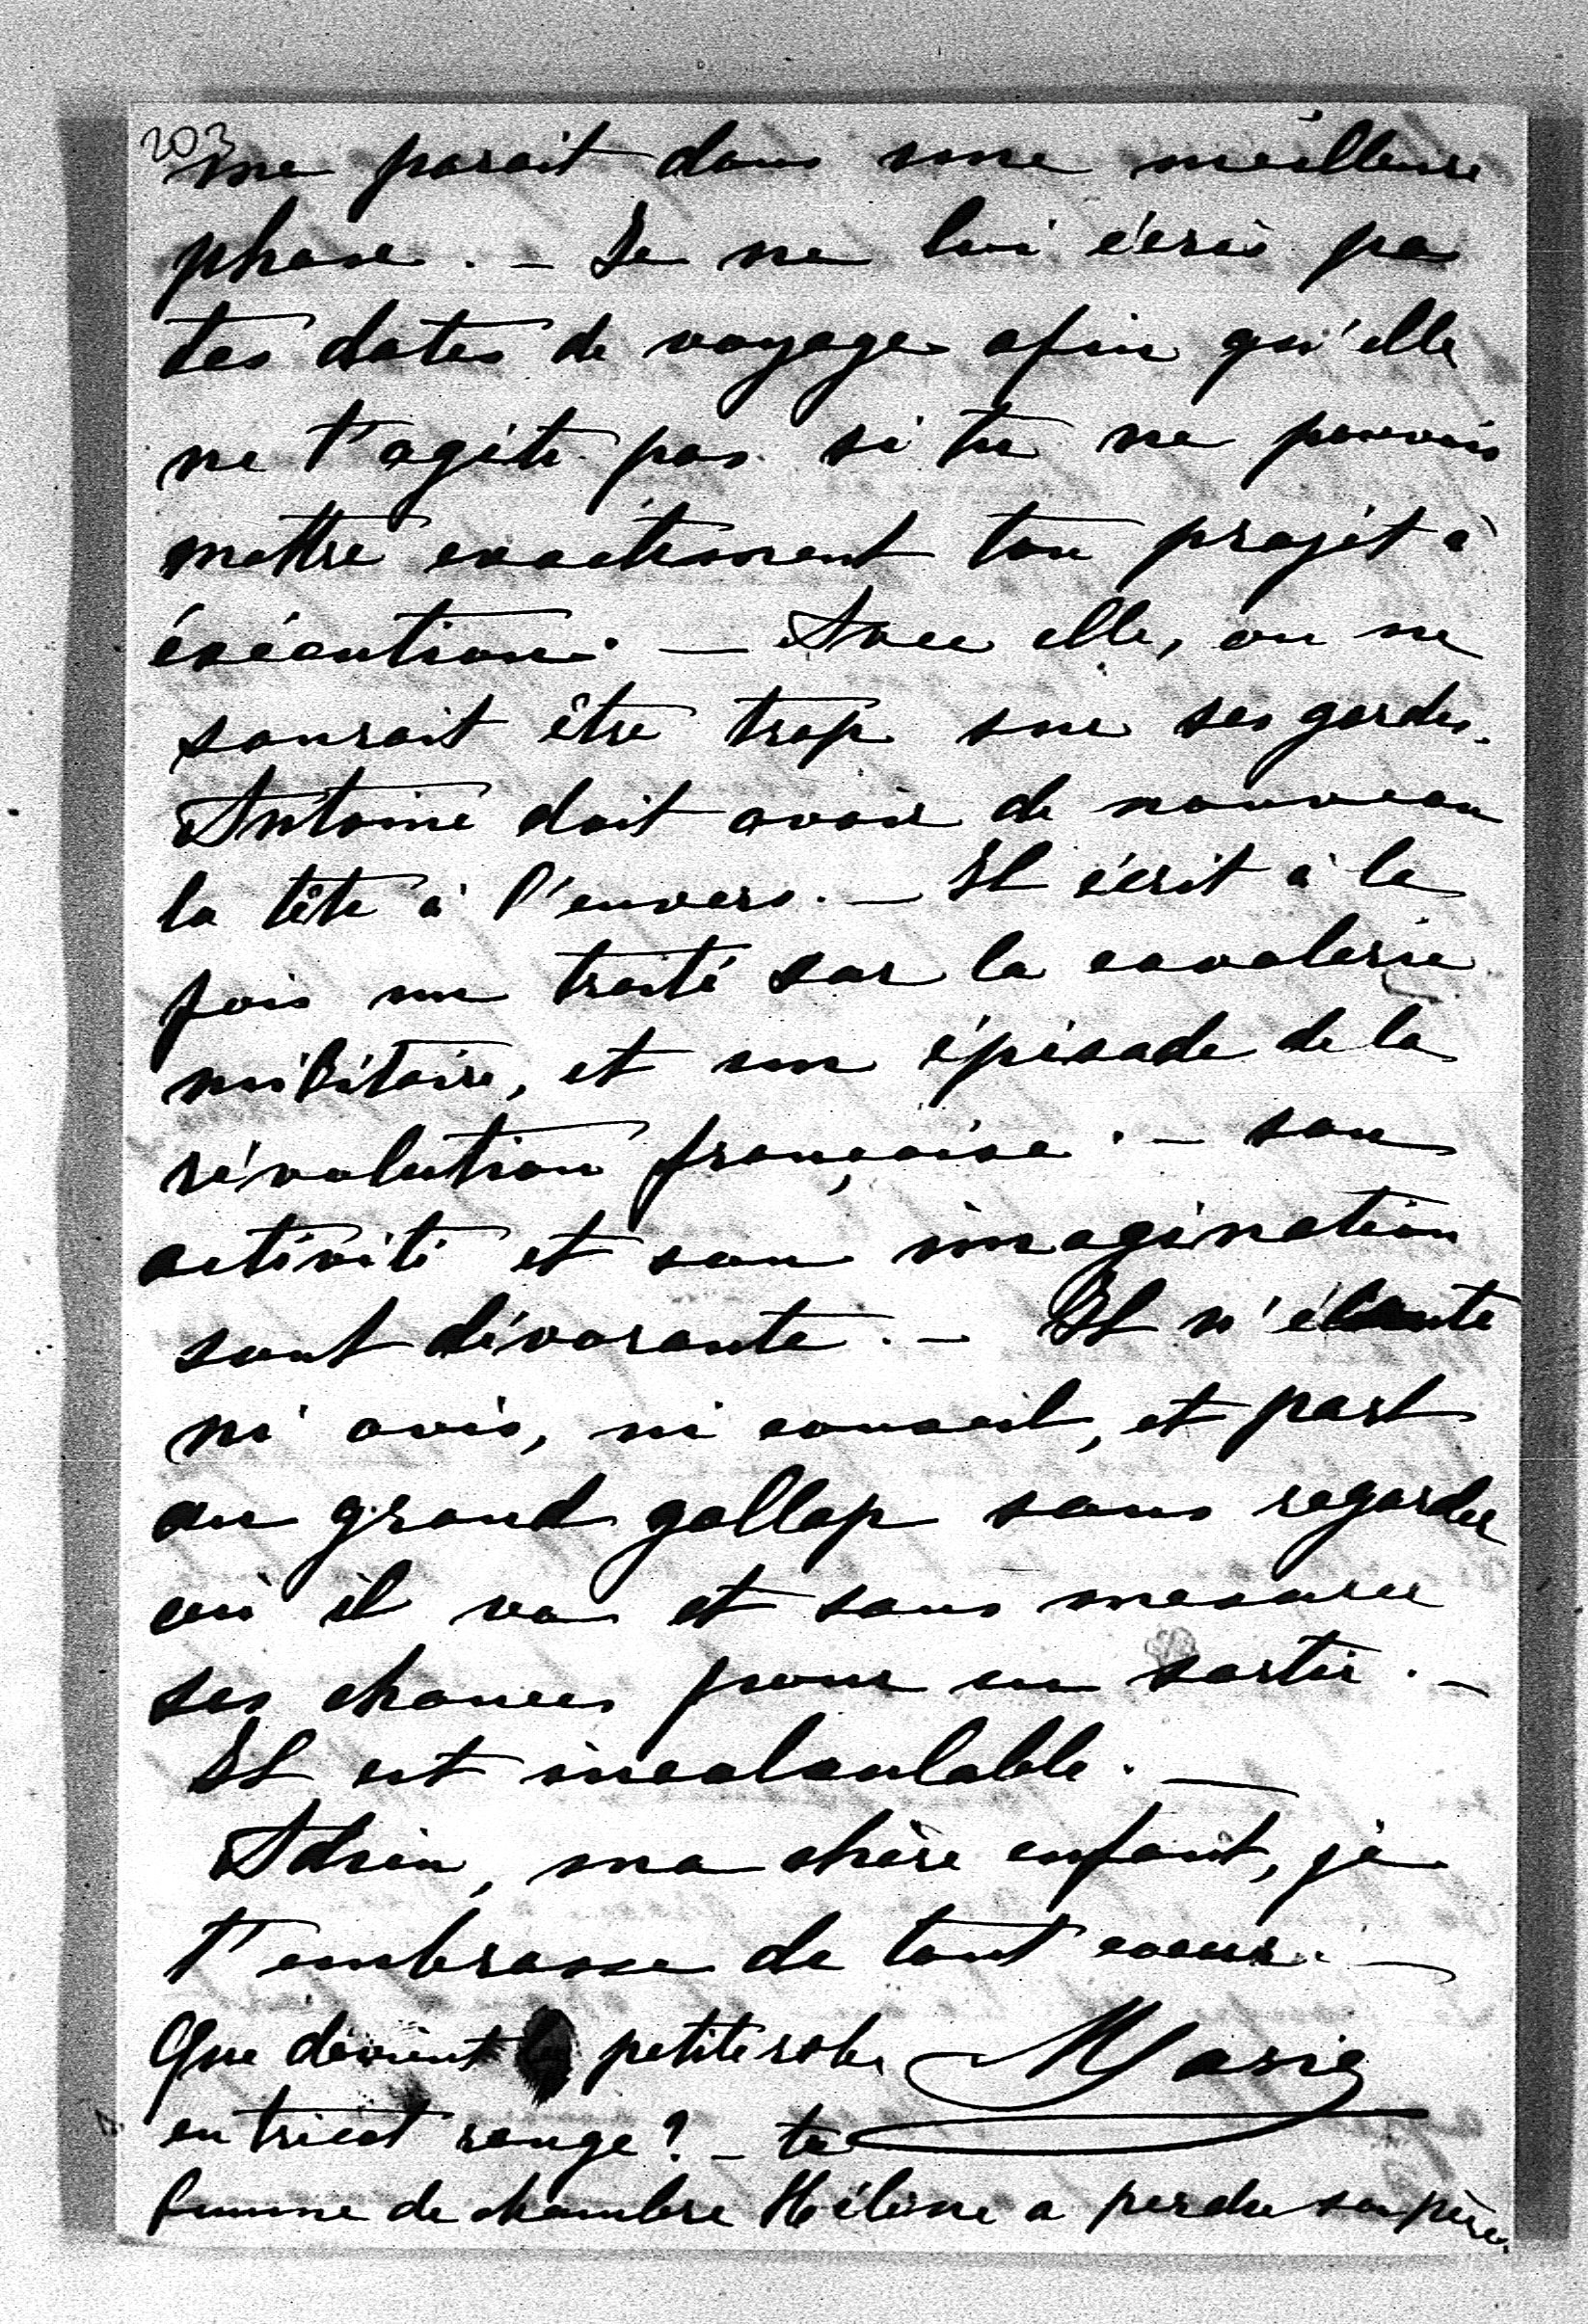 203
me parait dans une meilleure
phase. – Je ne lui écris pas
tes dates de voyage afin qu'elle
ne t'agite pas si tu ne pouvais
mettre exactement ton projet à
éxécution. – Avec elle, on ne
saurait être trop sur ses gardes.
Antoine doit avoir de nouveau
la tête à l'envers. – Il écrit à la
fois un traité sur la cavalerie
militaire, et un épisode de la
révolution française. – son
activité et son imagination
sont dévorante. – Il n'écoute
ni avis, ni conseil, et part
au grand gallop sans regarder
où il va et sans mesurer
ses chances pour en sortir. –
Il est incalculable. –
Adieu, ma chère enfant, je
t'embrasse de tout coeur. –
Que devient la petite robe Marie
en tricot rouge? – ta
femme de chambre Hélène a perdu son père.